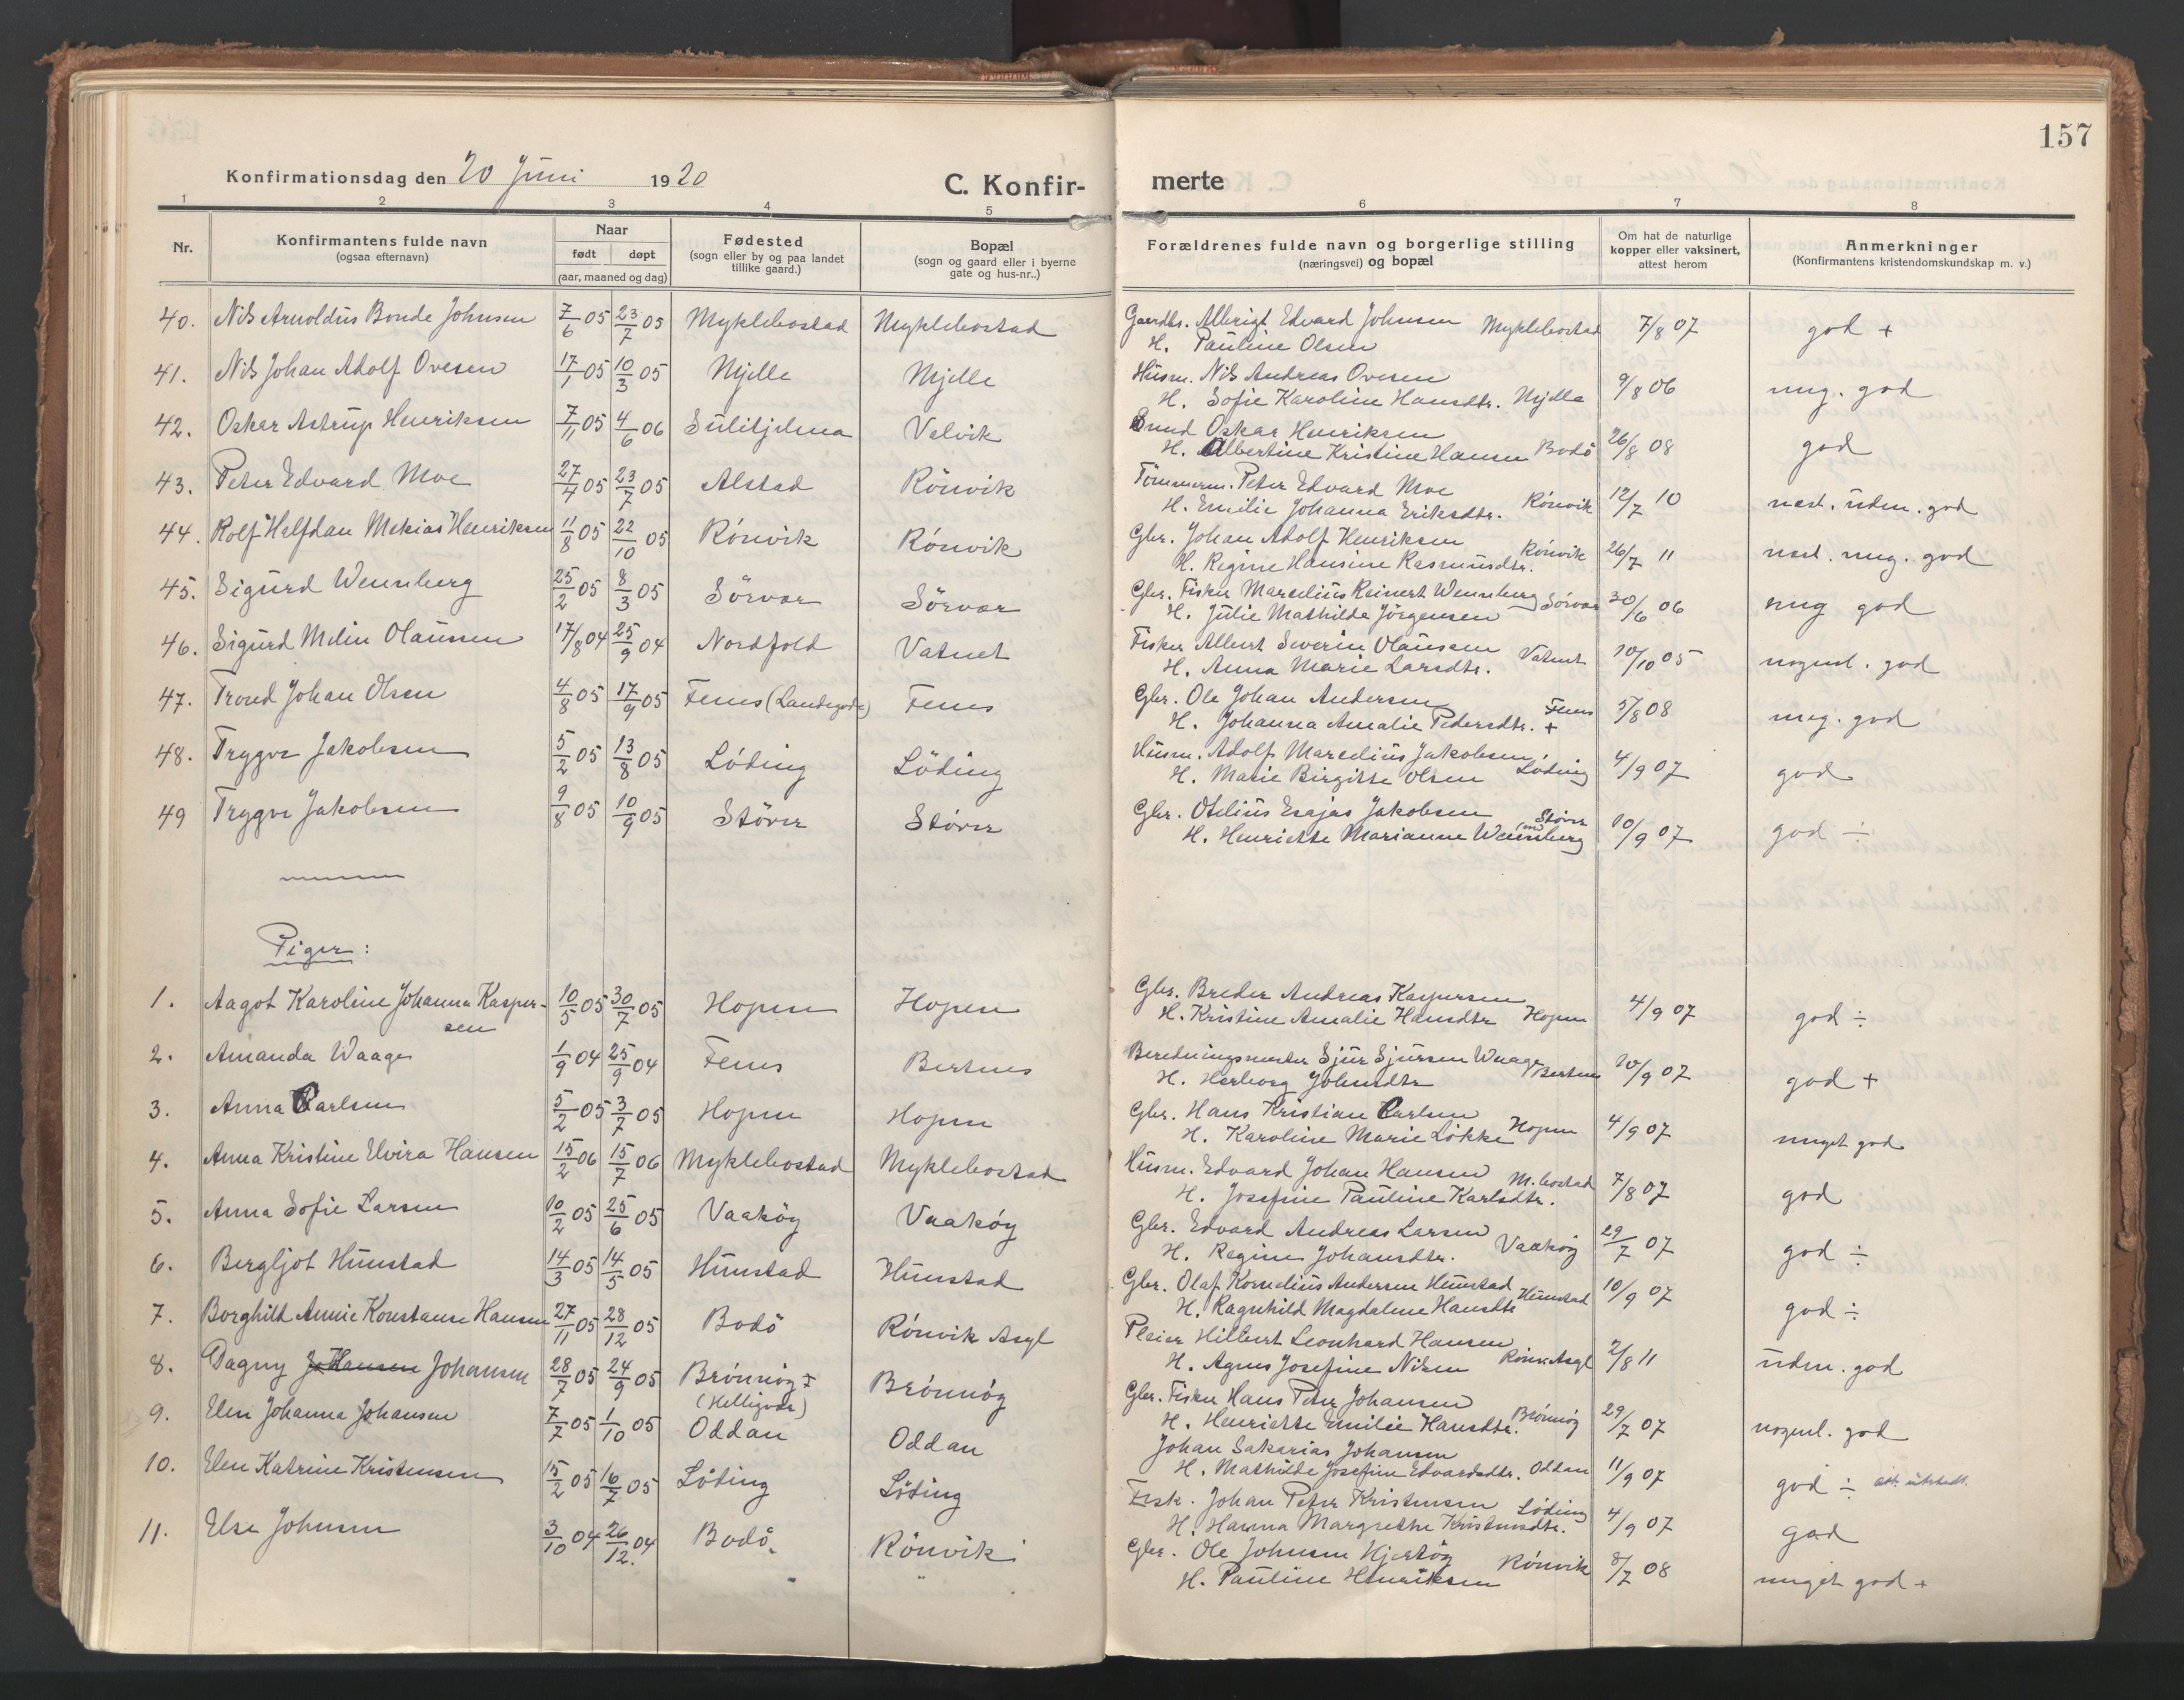 157
Konfirmationsdag den 20 Juni 1920
C. Konfirmerte
1 2 3 4 5 6 7 8
Nr. Konfirmantens fulde navn (ogsaa efternavn) Naar født døpt (aar, maaned og dag) Fødested (sogn eller by og paa landet tillike gaard.) Bopæl (sogn og gaard eller i byerne gate og hus-nr..) Forældrenes fulde navn og borgerlige stilling (næringsvei) og bopæl Om hat de naturlige kopper eller vaksinert, attest herom Anmerkninger (Konfirmantens kristendomskundskap m. v.)
40. Nils Arnoldus Bonde Johnsen 7/6 05 23/7 05 Myklebostad Myklebostad Gaardbr. Albrigt Edvard Johnsen Myklebostad 7/8 07 god +
H. Pauline Olsen
41. Nils Johan Adolf Ovesen 17/1 05 10/3 05 Mjelle Mjelle Husm. Nils Andreas Ovesen 9/8 06 mg. god
H. Sofie Karoline Hansdtr. Mjelle
42. Oskar Astrup Henriksen 7/11 05 4/6 06 Sulitjelma Valvik Oskar Henriksen 26/8 08 god
H. Albertine Kristine Hansen Bodö
43. Peter Edvard Moe 27/4 05 23/7 05 Alstad Rönvik Tömmerm. Peter Edvard Moe 12/7 10 næst. üdm. god
H. Emilie Johanna Eriksdtr. Rönvik
44. Rolf Halfdan Mekias Henriksen 11/8 05 22/10 05 Rönvik Rönvik Gbr. Johan Adolf Henriksen 26/7 11 næst. mg. god
H. Regine Hansine Rasmusdtr. Rönvik
45. Sigurd Wennberg 25/2 05 8/3 05 Sörvær Sörvær Gbr. Fisker Marselius Reinert Wennberg Sörvær 30/6 06 mg god
H. Julie Mathilde Jörgensen
46. Sigurd Melin Olaussen 17/8 04 25/9 04 Nordfold Vatnet Fisker Albert Severin Olaussen Vatnet 10/10 05 nogenl. god
H. Anna Marie Larsdtr.
47. Trond Johan Olsen 4/8 05 17/9 05 Fenes (Landegode) Fenes Gbr. Ole Johan Andersen Fenes 5/8 08 meg. god
H. Johanna Amalie Pedersdtr. +
48. Trygve Jakobsen 5/2 05 13/8 05 Löding Löding Husm. Adolf Marselius Jakobsen 4/9 07 god
H. Marie Birgitte Olsen Löding
49 Trygve Jakobsen 9/8 05 10/9 05 Störer Störer Gbr. Otelius Esajas Jakobsen Störer 10/9 07 god ÷
H. Henriette Marianne Wennberg
Piger:
1. Aagot Karoline Johanna Kaspersen 10/5 05 30/7 05 Hopen Hopen Gbr. Breder Andreas Kaspersen 4/9 07 god ÷
H. Kristine Amalie Hansdtr Hopen
2. Amanda Waage 1/9 04 25/9 04 Fenes Bertnes Beredningsmester Sjur Sjursen Waage Bertnes 10/9 07 god +
H. Herborg Johnsdtr
3. Anna Carlsen 5/2 05 3/7 05 Hopen Hopen Gbr. Hans Kristian Carlsen 4/9 07 meget god
H. Karoline Marie Lökke Hopen
4. Anna Kristine Elvira Hansen 15/2 06 15/7 06 Myklebostad Myklebostad Husm. Edvard Johan Hansen M.bostad 7/8 07 god
H. Josefine Pauline Karlsdtr.
5. Anna Sofie Larsen 10/2 05 25/6 05 Vaaköy Vaaköy Gbr. Edvard Andreas Larsen 29/7 07 god ÷
H. Regine Johansdtr. Vaaköy
6. Bergljot Hunstad 14/3 05 14/5 05 Hunstad Hunstad Gbr. Olaf Kornelius Andersen Hunstad 10/9 07 god ÷
H. Ragnhild Magdalene Hansdtr Hunstad
7. Borghild Annie Konstanse Hansen 27/11 05 28/12 05 Bodö Rönvik Asyl Pleier Hilbert Leonhard Hansen 2/8 11 üdm. god
H. Agnes Josefine Nilsen Rönv. Asyl
8. Dagny Johansen 28/7 05 24/9 05 Brönnöy (Helligvær) Brönnöy Gbr. Fisker Hans Peter Johansen 29/7 07 nogenl. god
H. Henriette Emilie Hansdtr. Brönnöy
9. Elen Johanna Johansen 7/7 05 1/10 05 Oddan Oddan Johan Sakarias Johansen 11/9 07 god ÷ att. utstedt.
H. Mathilde Josefine Edvardsdtr. Oddan
10. Elen Katrine Kristensen 15/2 05 16/7 05 Löding Löding Fisk. Johan Peter Kristensen 4/9 07 god
H. Hanna Margrethe Kristensdtr. Löding
11. Else Johnsen 3/10 04 26/12. 04 Bodö Rönvik Gbr. Ole Johnsen Hjertöy Rönvik 8/7 08 meget god +
H. Pauline Henriksen